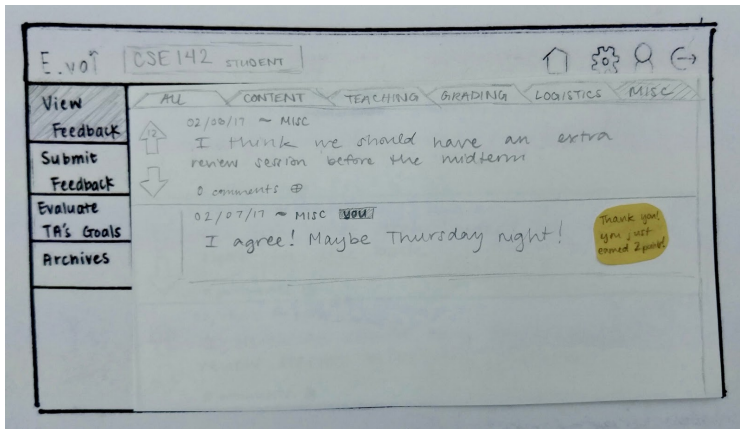 E.voi CSE 142 STUDENT
View
Feedback
Submit
Feedback
Evaluate
TA's Goals
Archives
ALL CONTENT TEACHING GRADING LOGISTICS MISC
02/06/17 ~ MISC
12
I think we should have an extra
review session before the midterm
0 comments ⊕
02/07/17 ~ MISC you
I agree! Maybe Thursday night!
Thank you!
you just
earned 2 points!